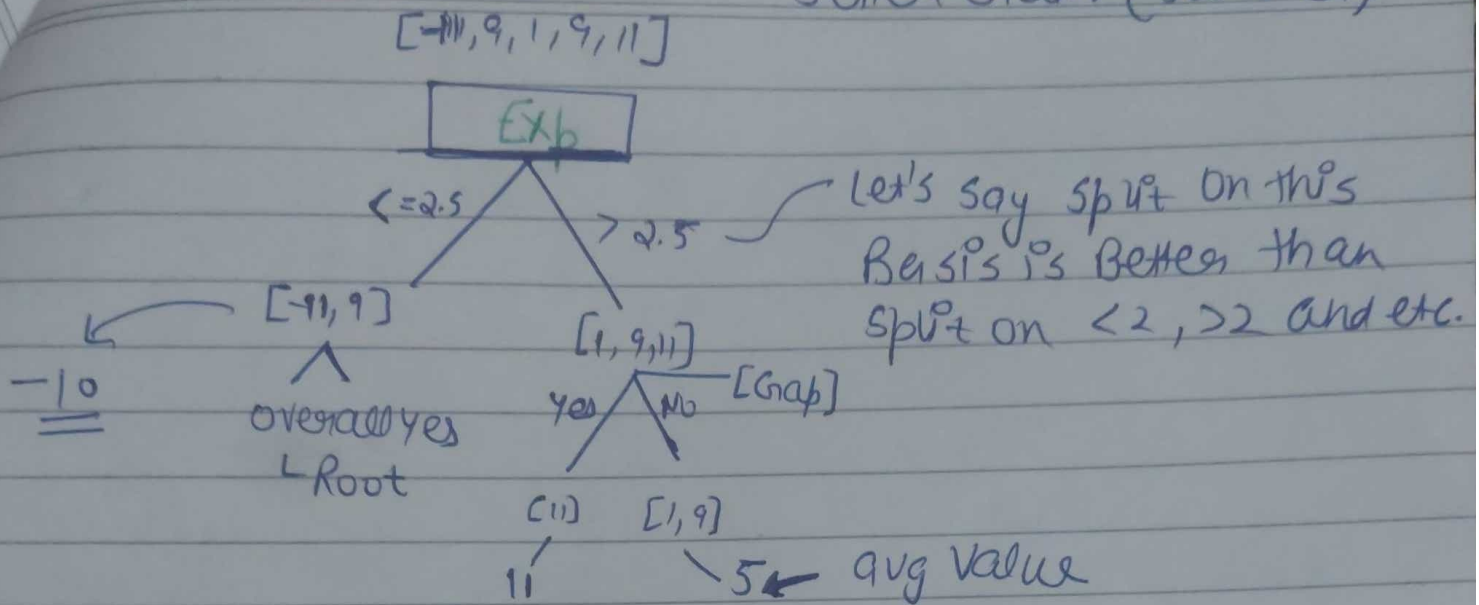 [-11, 9, 1, 9, 11]
Exp
<=2.5
> 2.5
Let's say split on this
Basis is Better than
split on <2, >2 and etc.
[-11, 9]
[1, 9, 11]
-10
overall yes
Root
Yes
No
[Gap]
[11]
[1, 9]
11
5 ← avg value